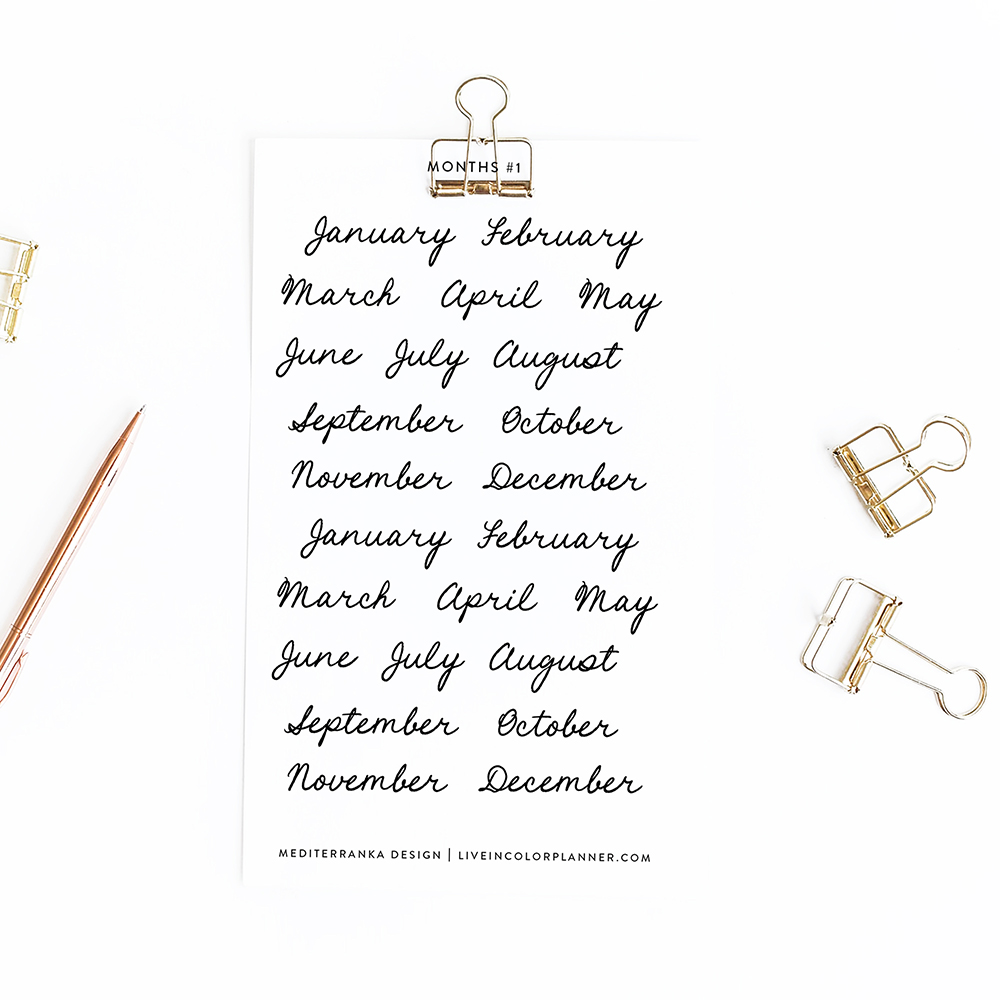 MONTHS #1
January February
March April May
June July August
September October
November December
January February
March April May
June July August
September October
November December
MEDITERRANKA DESIGN | LIVEINCOLORPLANNER.COM